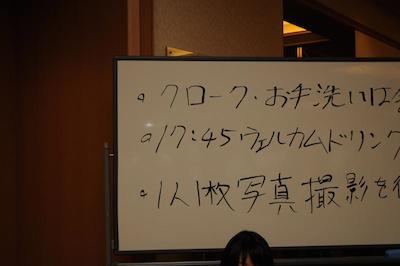 。クローク・お手洗いは
。17:45 ウェルカムドリンク
・1人1枚写真撮影を